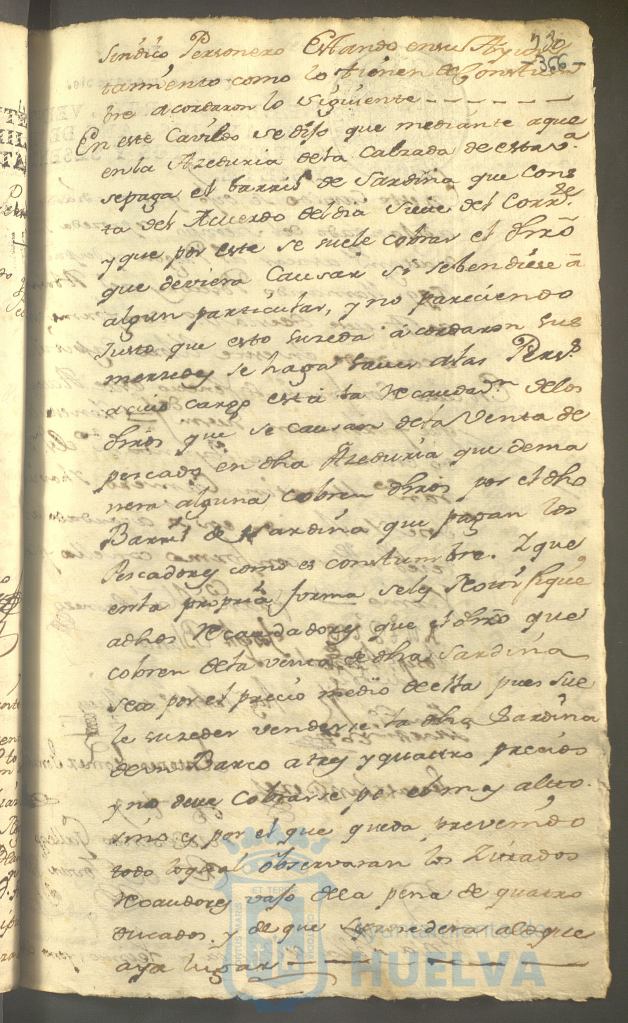 330
-366-
sindico Personero Estando en su Ayun
tamiento como lo tienen de Constum
bre acordaron lo Siguiente - - - - - -
En este Cavildo se dijo que mediante aque
en la Azeduria de la Calzada de esta va
se paga el barril de Sardina que cons
ta del Acuerdo del dia Siete del Corrte
y que por este se suele cobrar el dhro
que deviera Causar si sebendiese a
algun particular, y no pareciendo
Justo que esto suzeda acordaron sus
mercedes se haga saver a las Persas
a cuio cargo esta la Recaudaon de los
dhros que se causan de la Venta de
pescado en dha Azeduria que dema
nera alguna cobren dhros por el dho
Barril de Sardina que pagan los
Pescadores como es constumbre. Y que
en la propria forma se les Notifique
a dhos Recaudadores que el dhro que
cobren de la venta de dha Sardina
sea por el precio medio de ella pues sue
le suzeder venderse la dha Sardina
de un Barco a tres y quattro precios
y no deve Cobrarse por el mas alto
sino es por el que queda prevenido
todo lo qual observaran los Zitados
Recaudores vajo de la pena de quatro
ducados, y de que se prozedera a lo que
aya lugar - - - - - -
Ayuntamiento de
HUELVA